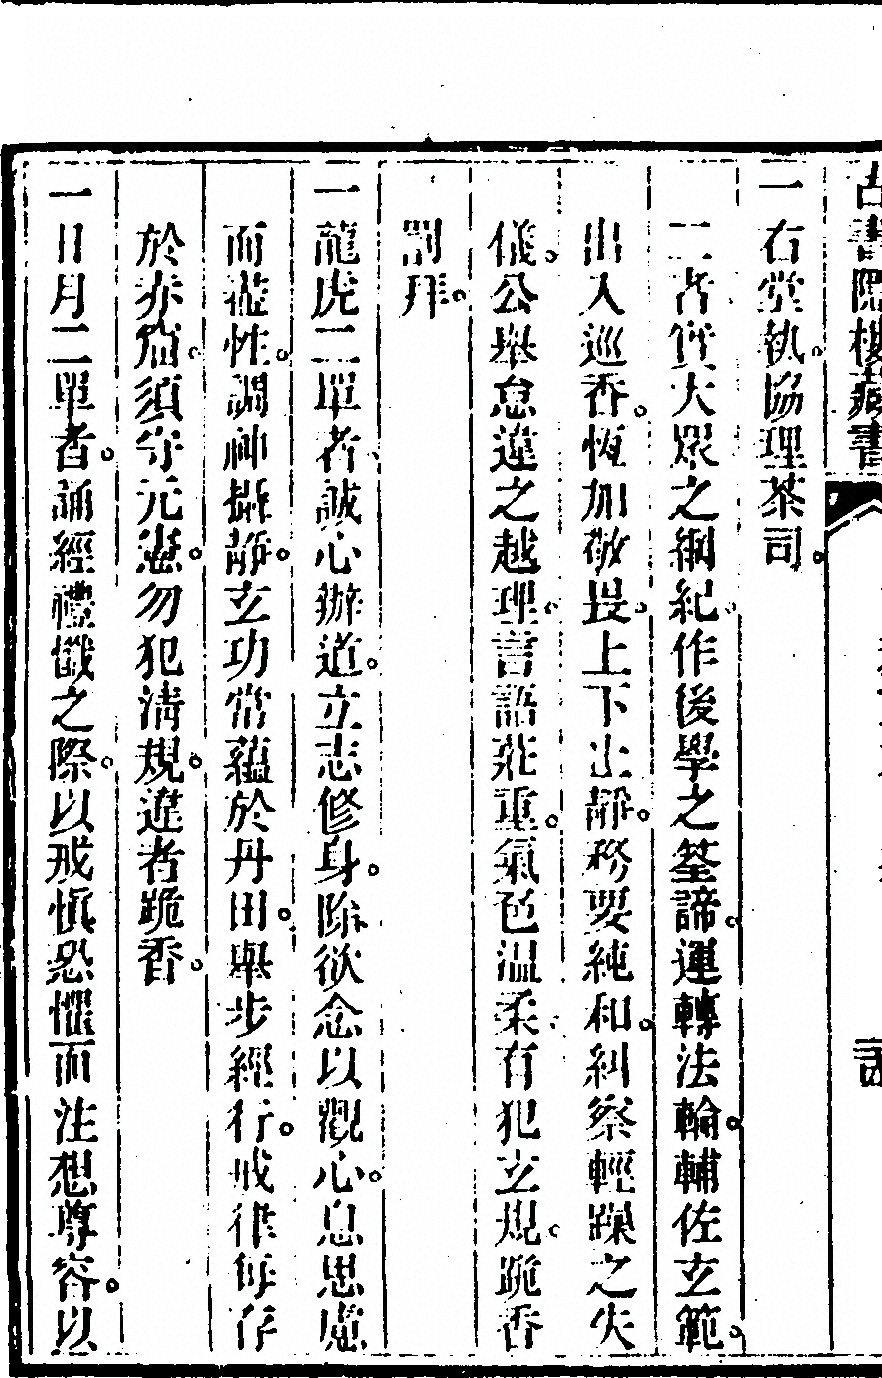 古書隱樓藏書
一右堂執協理茶司。
二者實大眾之綱紀。作後學之筌諦。運轉法輪。輔佐玄範。
出入巡香。恆加敬畏。上下止靜。務要純和。糾察輕躁之失
儀。公舉怠違之越理。言語莊重。氣色溫柔。有犯玄規。跪香
罰拜。
一龍虎二單者。誠心辦道。立志修身。除欲念以觀心。息思慮
而凝性。調神攝靜。玄功常蘊於丹田。舉步經行。戒律每存
於赤㐫。須守元憲。勿犯清規。違者跪香。
一日月二單者。誦經禮懺之際。以戒慎恐懼而注想尊容。以